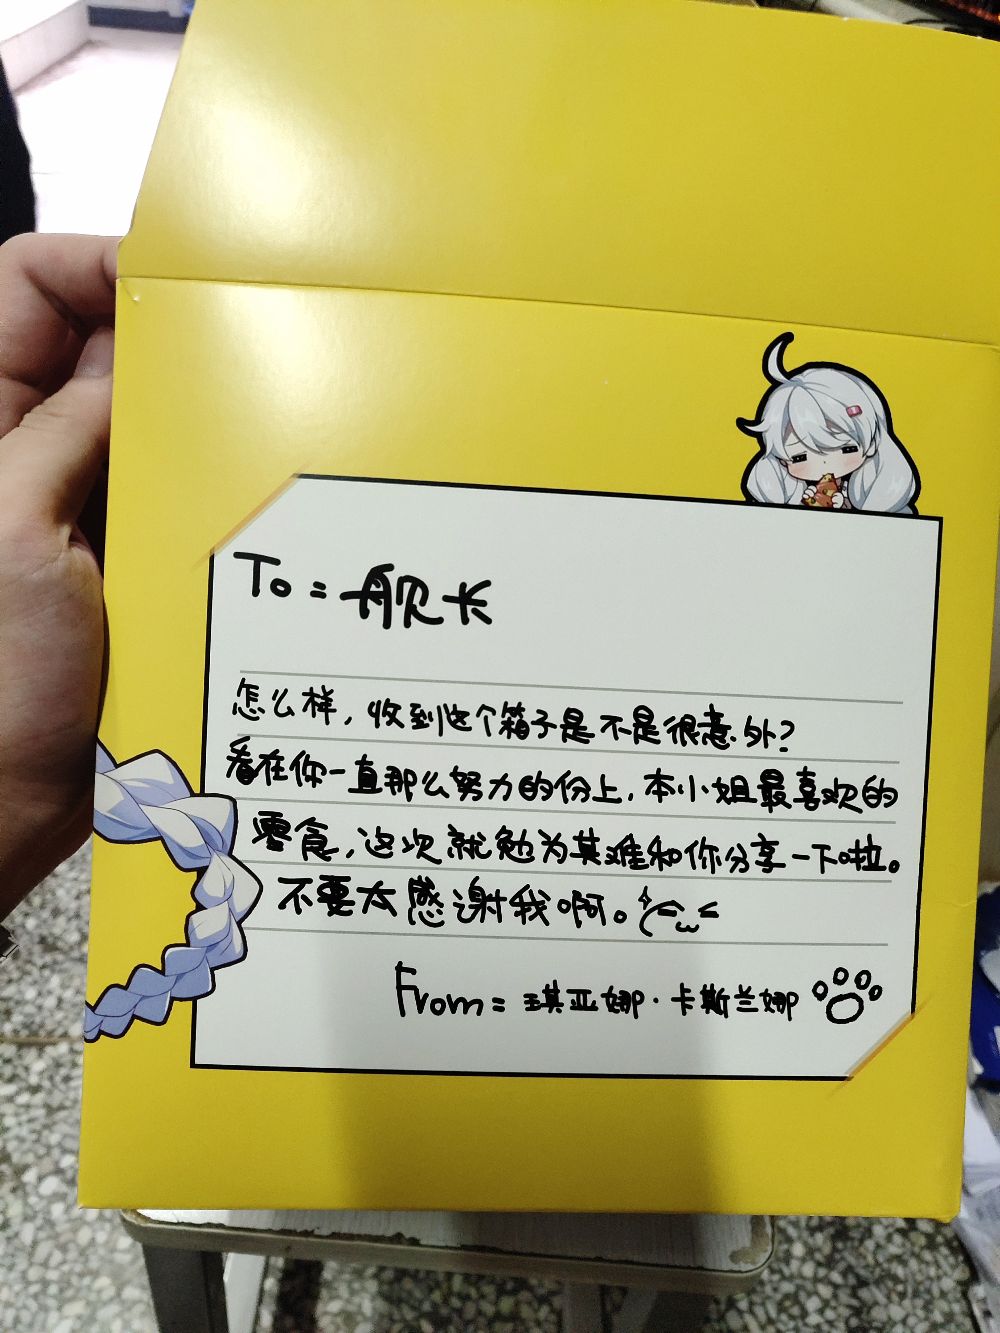 To = 舰长
怎么样，收到这个箱子是不是很意外？
看在你一直那么努力的份上，本小姐最喜欢的
零食，这次就勉为其难和你分享一下啦。
不要太感谢我啊。
From = 琪亚娜·卡斯兰娜